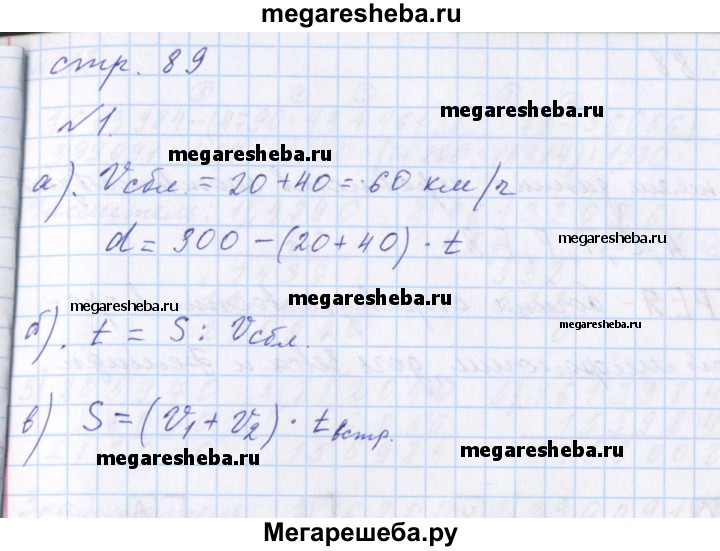 megaresheba.ru
стр. 89
megaresheba.ru
№1.
megaresheba.ru
а). Vсбл. = 20 + 40 = 60 км/ч
d = 300 – (20 + 40) · t
megaresheba.ru
megaresheba.ru
megaresheba.ru
б). t = S : Vсбл.
megaresheba.ru
в) S = (V₁ + V₂) · tвстр.
megaresheba.ru
megaresheba.ru
Мегарешеба.ру